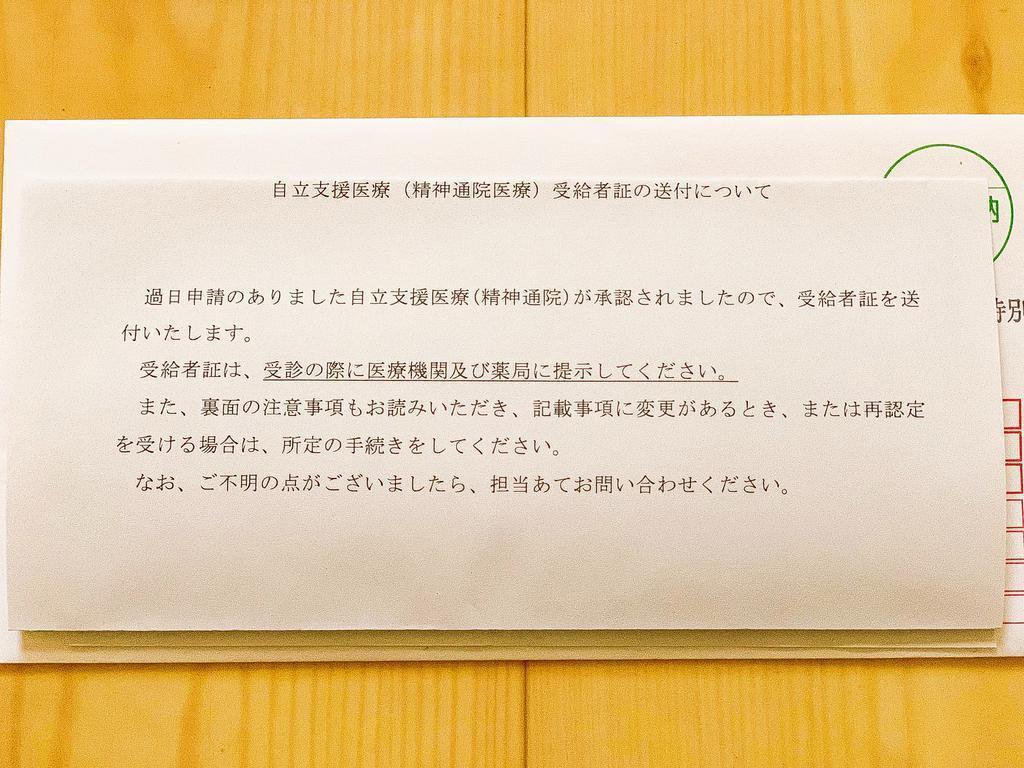 自立支援医療（精神通院医療）受給者証の送付について
過日申請のありました自立支援医療(精神通院)が承認されましたので、受給者証を送
付いたします。
受給者証は、受診の際に医療機関及び薬局に提示してください。
また、裏面の注意事項もお読みいただき、記載事項に変更があるとき、または再認定
を受ける場合は、所定の手続きをしてください。
なお、ご不明の点がございましたら、担当あてお問い合わせください。
納
特別